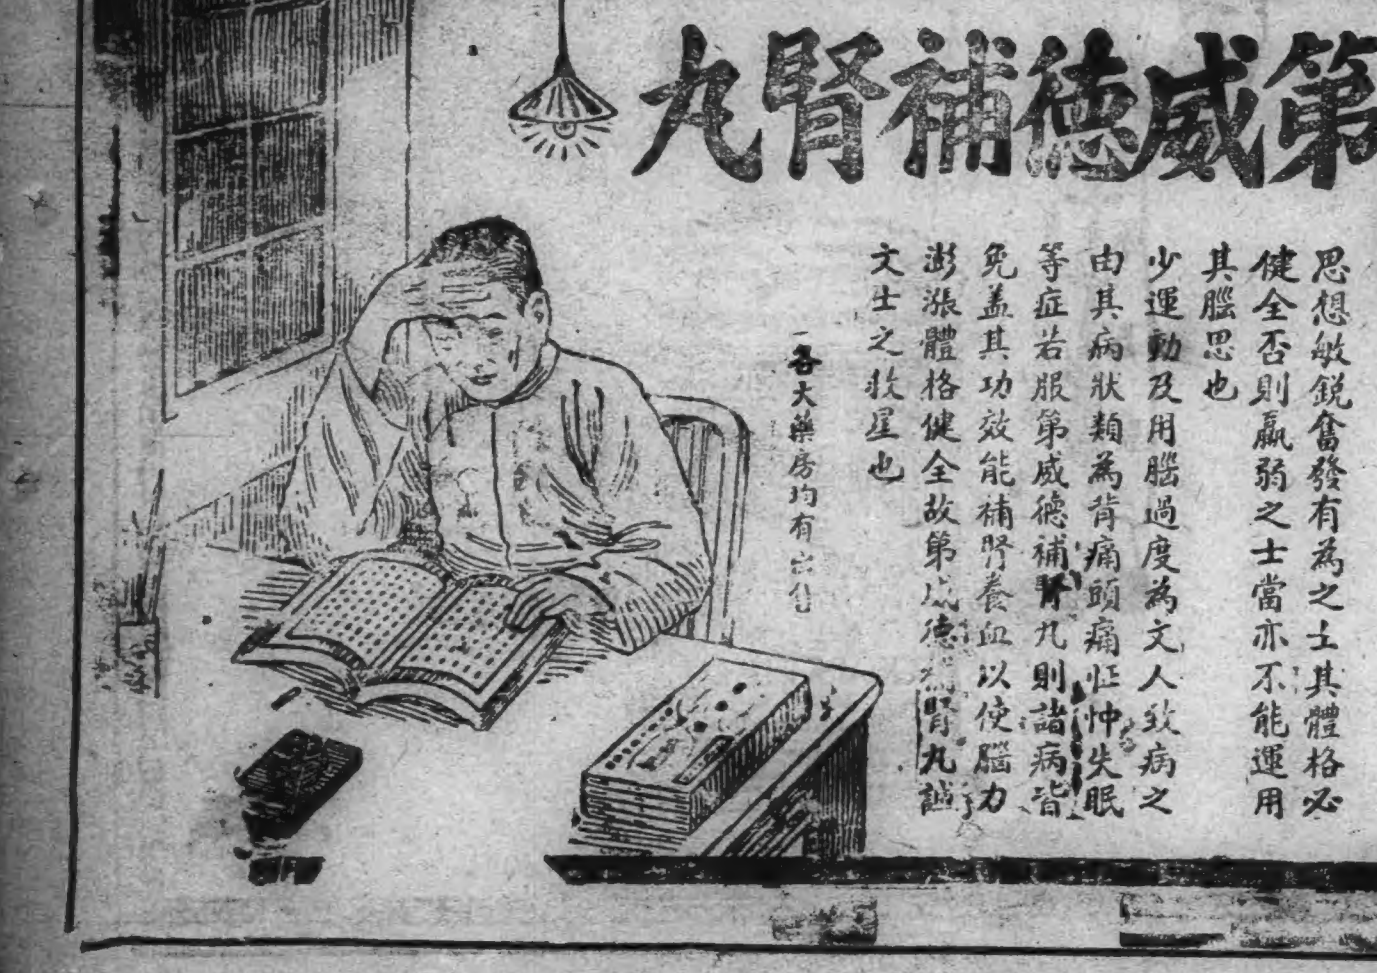 第威德補腎丸
思想敏銳奮發有為之士其體格必
健全否則羸弱之士當亦不能運用
其腦思也
少運動及用腦過度為文人致病之
由其病狀類為背痛頭痛怔忡失眠
等症若服第威德補腎丸則諸病皆
免蓋其功效能補腎養血以使腦力
澎漲體格健全故第威德補腎丸誠
文士之救星也
各大藥房均有出售